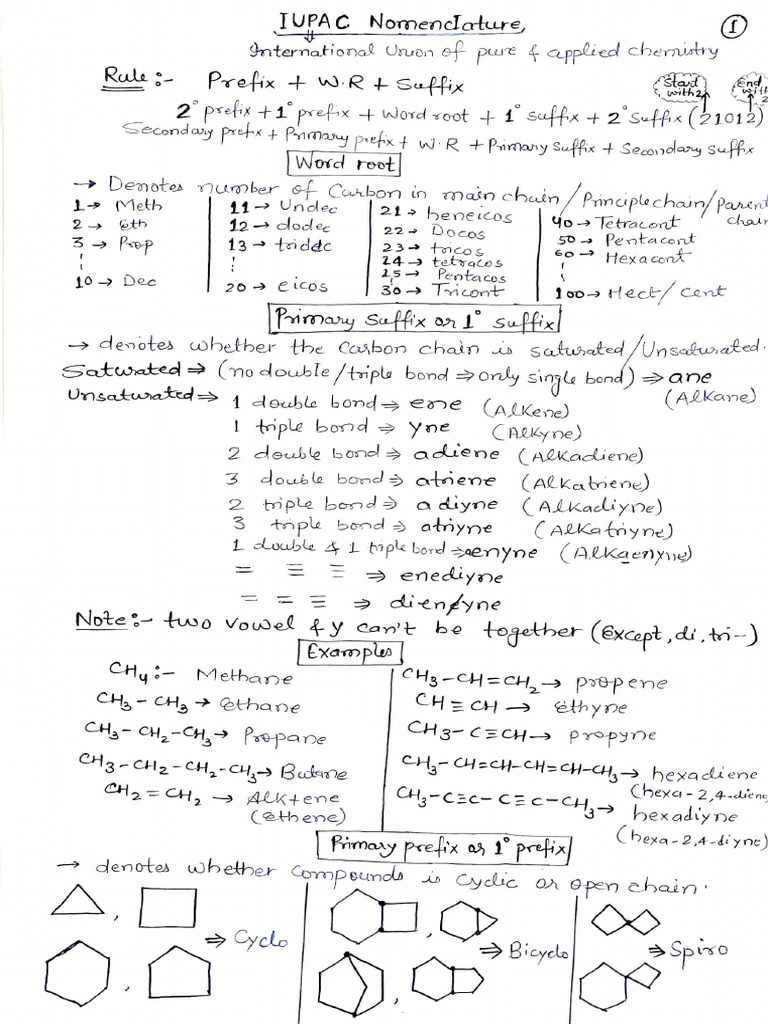 IUPAC Nomenclature
1
International Union of pure & applied chemistry
Rule :- Prefix + W.R + Suffix
Start with 2
End with 2
2° prefix + 1° prefix + Word root + 1° suffix + 2° suffix (21012)
Secondary prefix + Primary prefix + W.R + Primary suffix + Secondary suffix
Word root
→ Denotes number of Carbon in main chain/Principle chain/Parent chain
1 → Meth
2 → eth
3 → Prop
10 → Dec
11 → Undec
12 → dodec
13 → tridec
20 → eicos
21 → heneicos
22 → Docos
23 → tricos
24 → tetracos
25 → Pentacos
30 → Tricont
40 → Tetracont
50 → Pentacont
60 → Hexacont
100 → Hect/cent
Primary suffix or 1° suffix
→ denotes whether the Carbon chain is saturated/Unsaturated.
Saturated ⇒ (no double/triple bond ⇒ only single bond) ⇒ ane
(Alkane)
Unsaturated ⇒ 1 double bond ⇒ ene (Alkene)
1 triple bond ⇒ yne (Alkyne)
2 double bond ⇒ adiene (Alkadiene)
3 double bond ⇒ atriene (Alkatriene)
2 triple bond ⇒ adiyne (Alkadiyne)
3 triple bond ⇒ atriyne (Alkatriyne)
1 double & 1 triple bond ⇒ enyne (Alkaenyne)
= ≡ ≡ ⇒ enediyne
= = ≡ ⇒ dienyne
Note :- two vowel & y can't be together (Except, di, tri--)
Examples
CH4 :- Methane
CH3 - CH3 → ethane
CH3 - CH2 - CH3 → Propane
CH3 - CH2 - CH2 - CH3 → Butane
CH2 = CH2 → Alktene
(ethene)
CH3 - CH = CH2 → propene
CH ≡ CH → Ethyne
CH3 - C ≡ CH → propyne
CH3 - CH = CH - CH = CH - CH3 → hexadiene
(hexa-2,4-diene
CH3 - C ≡ C - C ≡ C - CH3 → hexadiyne
(hexa-2,4-diyne)
Primary prefix or 1° prefix
→ denotes whether compounds is cyclic or open chain.
⇒ Cyclo
⇒ Bicyclo
⇒ Spiro